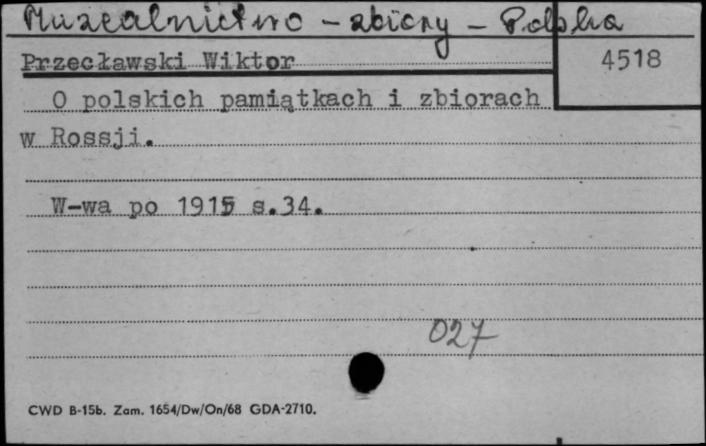 Muzealnictwo - zbiory - Polska
Przecławski Wiktor
4518
O polskich pamiątkach i zbiorach
w Rossji.
W-wa po 1915 s.34.
027
CWD B-15b. Zam. 1654/Dw/On/68 GDA-2710.